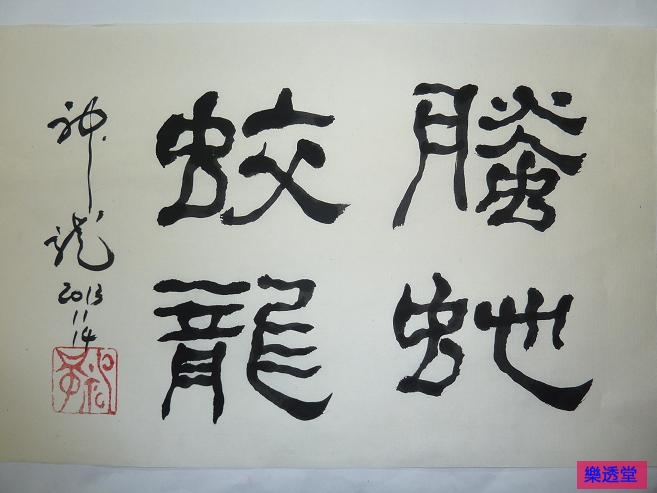 螣虵
蛟龍
神龍
2013
11
14
樂透堂